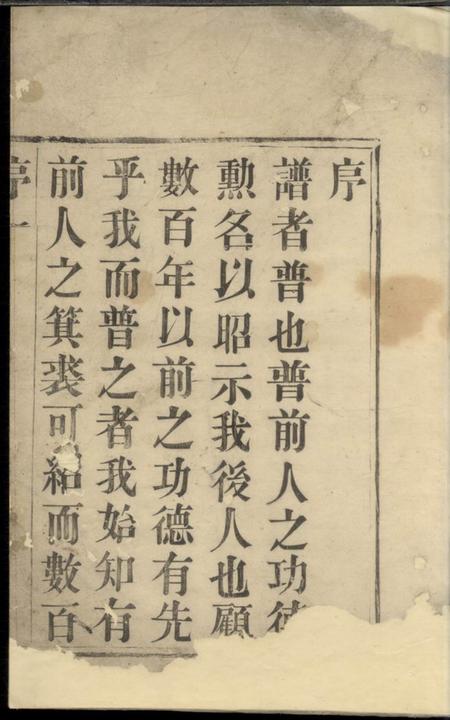 序
譜者普也普前人之功德
勲名以昭示我後人也顧
數百年以前之功德有先
乎我而普之者我始知有
前人之箕裘可紹而數百
序一